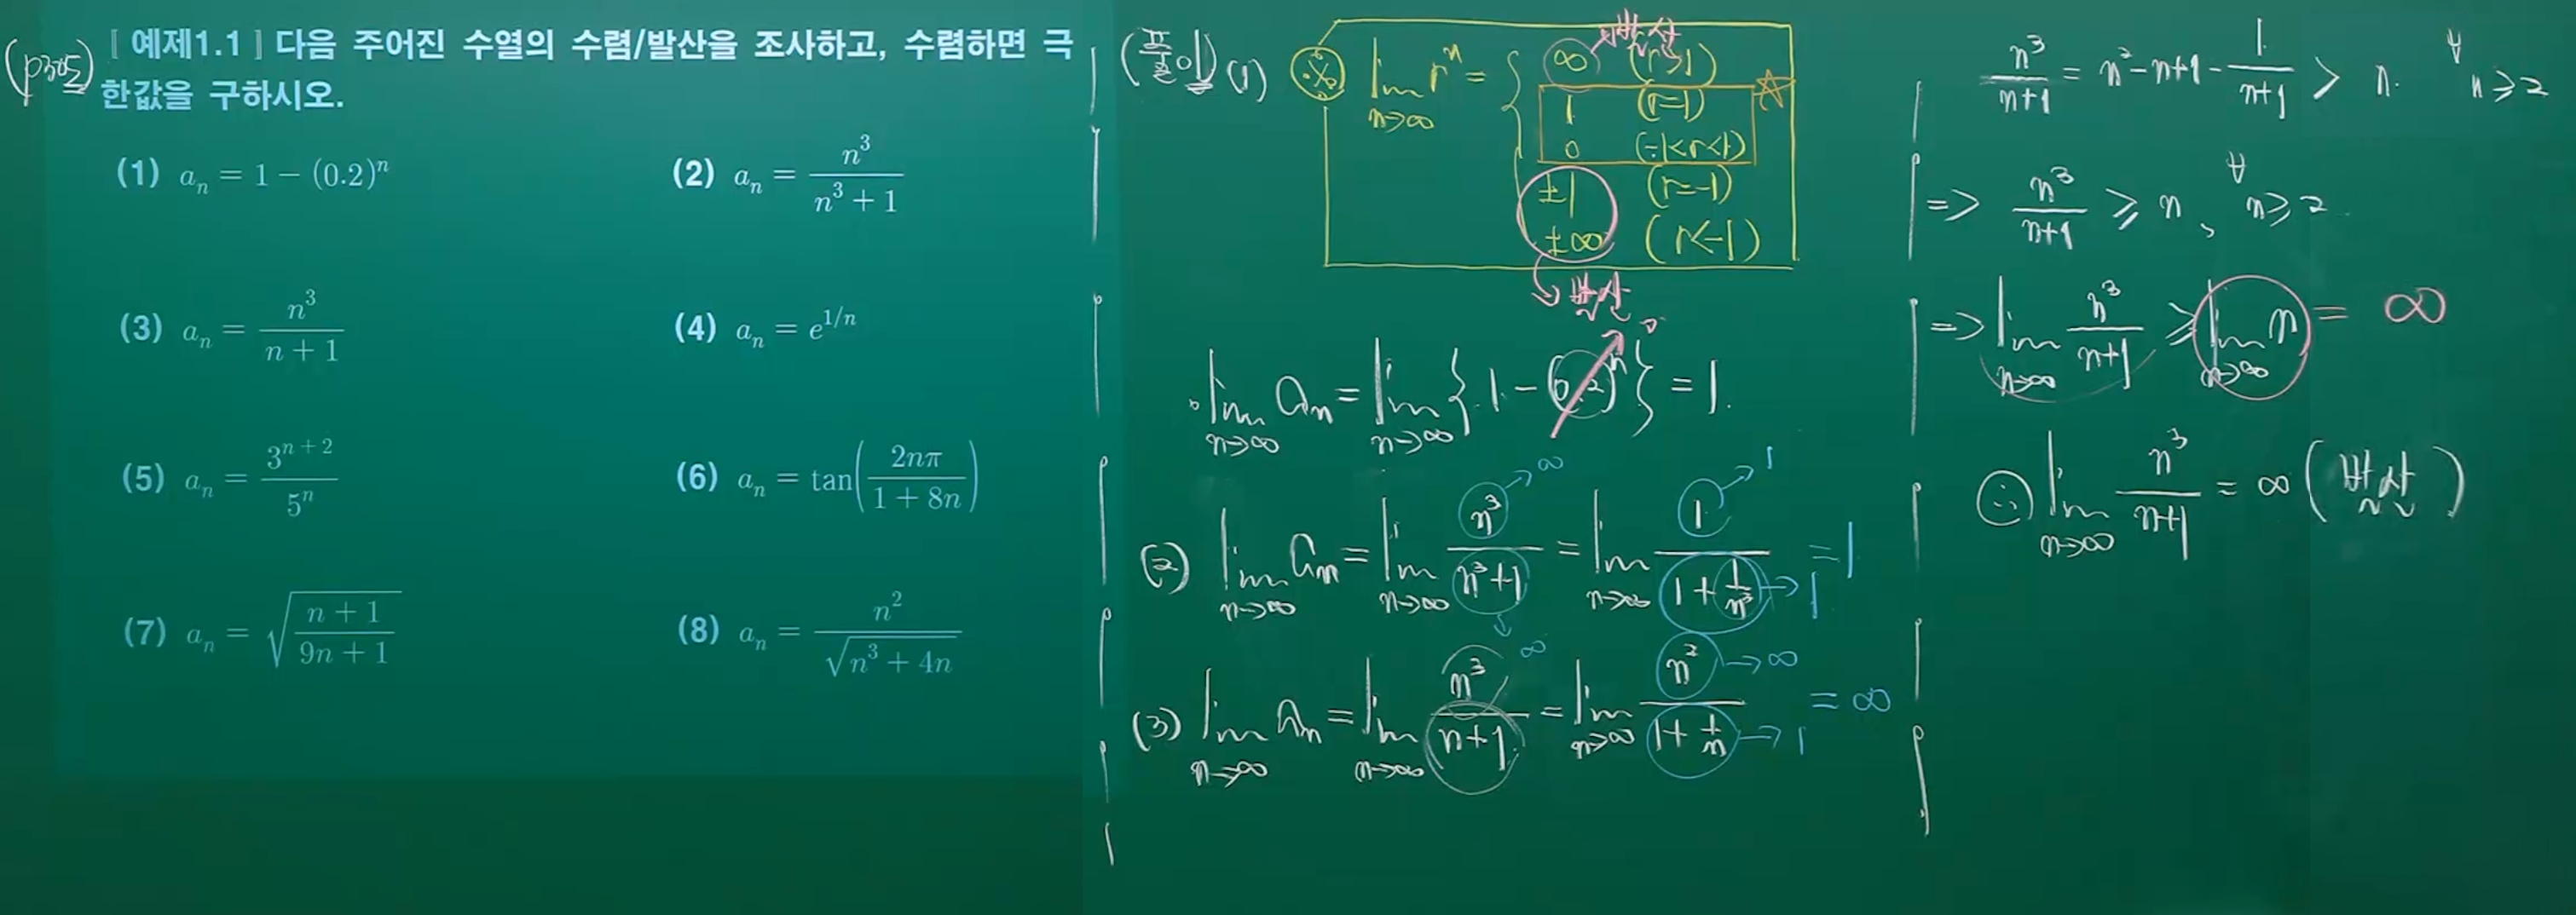 [ 예제1.1 ] 다음 주어진 수열의 수렴/발산을 조사하고, 수렴하면 극
한값을 구하시오.
(1) a_n = 1 − (0.2)^n
(2) a_n = n^3/(n^3 + 1)
(3) a_n = n^3/(n + 1)
(4) a_n = e^{1/n}
(5) a_n = 3^{n + 2}/5^n
(6) a_n = tan(2nπ/(1 + 8n))
(7) a_n = √((n + 1)/(9n + 1))
(8) a_n = n^2/√(n^3 + 4n)
(풀이) (1) ※ lim_{n→∞} r^n = {
∞ (r>1) → 발산
1 (r=1) ☆
0 (-1<r<1)
±1 (r=-1)
±∞ (r<-1)
→ 발산
lim_{n→∞} a_n = lim_{n→∞} { 1 − (0.2)^n } = 1. → 0
(2) lim_{n→∞} a_n = lim_{n→∞} n^3/(n^3+1) = lim_{n→∞} 1/(1 + 1/n^3) = 1
→ ∞ → ∞ → 1 → 1
(3) lim_{n→∞} a_n = lim_{n→∞} n^3/(n+1) = lim_{n→∞} n^2/(1 + 1/n) = ∞
→ ∞ → 1
n^3/(n+1) = n^2 − n + 1 − 1/(n+1) > n. ∀n ≥ 2
=> n^3/(n+1) ≥ n, ∀n ≥ 2.
=> lim_{n→∞} n^3/(n+1) ≥ lim_{n→∞} n = ∞
∴ lim_{n→∞} n^3/(n+1) = ∞ (발산)